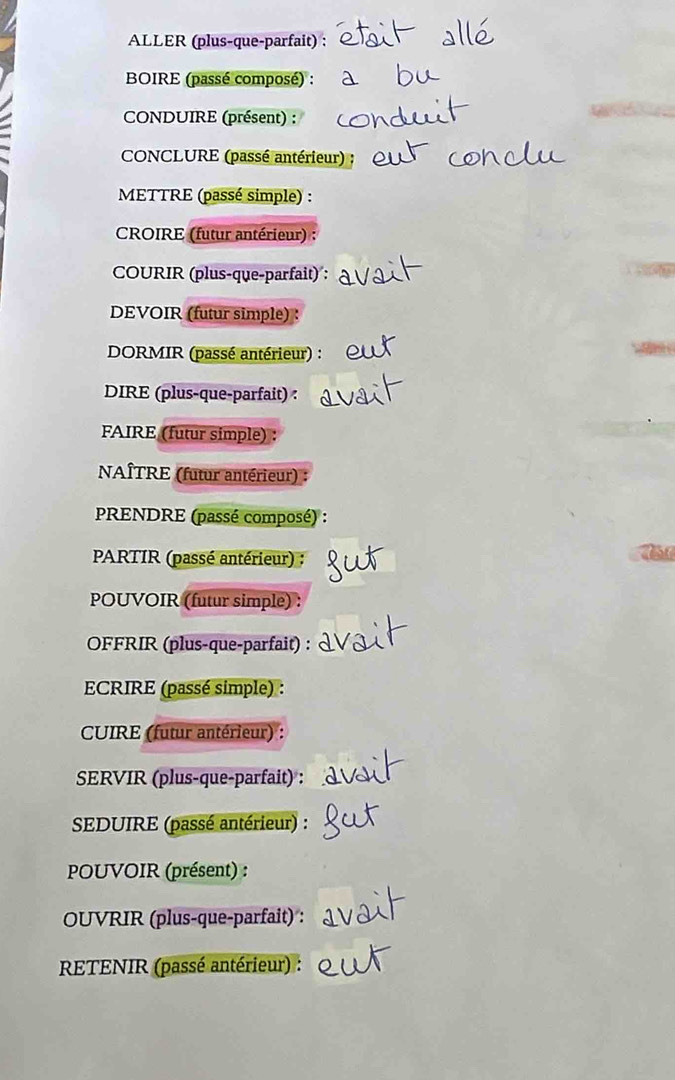 ALLER (plus-que-parfait) : était allé
BOIRE (passé composé) : a bu
CONDUIRE (présent) : conduit
CONCLURE (passé antérieur) : eut conclu
METTRE (passé simple) :
CROIRE (futur antérieur) :
COURIR (plus-que-parfait) : avait
DEVOIR (futur simple) :
DORMIR (passé antérieur) : eut
DIRE (plus-que-parfait) : avait
FAIRE (futur simple) :
NAÎTRE (futur antérieur) :
PRENDRE (passé composé) :
PARTIR (passé antérieur) : fut
POUVOIR (futur simple) :
OFFRIR (plus-que-parfait) : avait
ECRIRE (passé simple) :
CUIRE (futur antérieur) :
SERVIR (plus-que-parfait) : avait
SEDUIRE (passé antérieur) : fut
POUVOIR (présent) :
OUVRIR (plus-que-parfait) : avait
RETENIR (passé antérieur) : eut